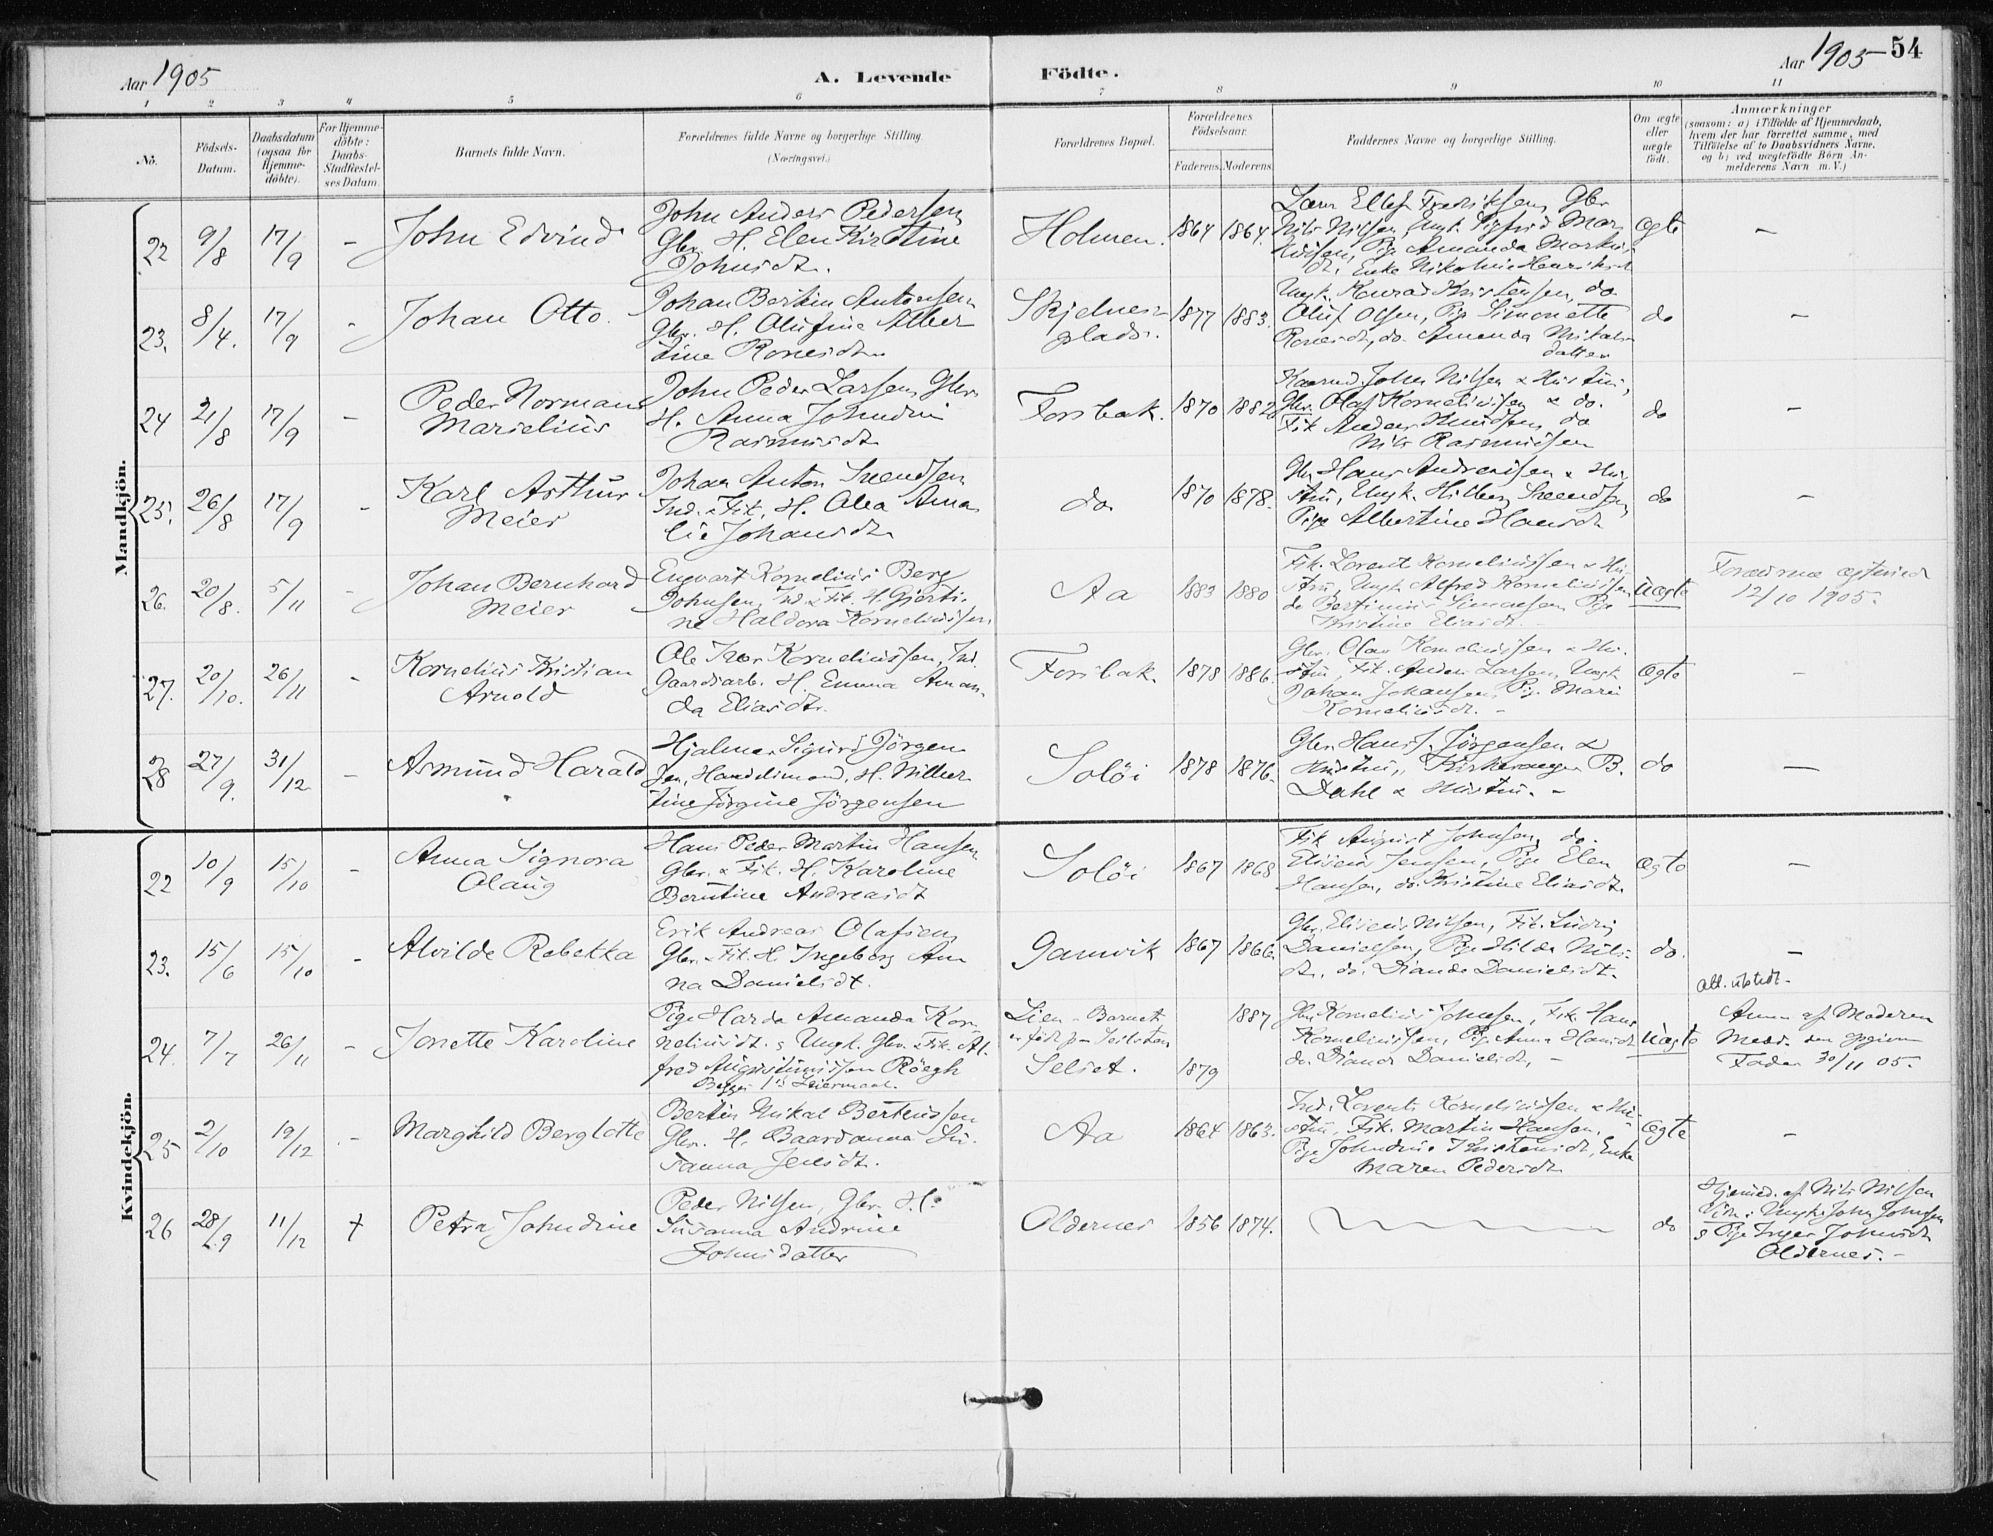 Aar 1905
A. Levende
Födte.
Aar 1905
54
1 2 3 4 5 6 7 8 9 10 11
No.
Födsels-
Datum.
Daabsdatum
(ogsaa for
Hjemme-
döbte).
For Hjemme-
döbte:
Daabs-
Stadfæstel-
ses Datum
Barnets fulde Navn.
Forældrenes fulde Navne og borgerlige Stilling.
(Næringsvei.)
Forældrenes Bopæl.
Forældrenes
Födselsaar.
Faderens. Moderens.
Faddernes Navne og borgerlige Stilling.
Om ægte
eller
uægte
födt.
Anmærkninger
(saasom: a) i Tilfælde af Hjemmedaab,
hvem der har forrettet samme, med
Tilföielse af to Daabsvidners Navne,
og b) ved uægtefödte Börn An-
melderens Navn m. V.)
Mandkjön.
22 9/8 17/9 – John Edvind
John Anders Pedersen
Gbr. H. Elen Kirstine
Johnsdt.
Holmen. 1864 1864.
Ellef Fredriksen, Gbr
Nils Nilsen, Ungk. Sigfred Mar
Nilsen, Pige Amanda Markus
dt. Enke Nikoline Henriksdt
ægte –
23. 8/4. 17/9 – Johan Otto.
Johan Bertin Antonsen
Gbr. H. Olufine Alber
tine Ronesdt.
Skjelnes-
plads. 1877 1883.
Ungk. Konrad Kristensen, do
Oluf Olsen, Pige Simonette
Ronesdt, do. Amanda Mikals-
datter
do –
24 21/8 17/9 – Peder Norman
Marselius
John Peder Larsen, Gbr.
H. Anna Johndine
Rasmusdt.
Forsbak. 1870 1882
Kaarmd. Johan Nilsen & Hustru,
Gbr. Olaf Korneliussen & do.
Fik Anders Knudsen, do
Nils Rasmussen
do –
25. 26/8 17/9 – Karl Arthur
Meier
Johan Anton Svendsen
Ind. & Fik. H. Olea Ama
lie Johansdt.
do. 1870 1878.
Gbr. Hans Andreassen & Hu-
stru, Ungk. Hilberg Svendsen,
Pige Albertine Hansdt
do –
26. 20/8. 5/11 – Johan Bernhard
Meier
Engvart Kornelius Berg
Johnsen, Ind. & Fik. H. Gjerti-
ne Haldora Korneliussen
Aa 1883 1880
Fik. Lorents Korneliussen & Hu-
stru, Ungk. Alfred Korneliussen
do Bertinius Simonsen, Pige
Kristine Eliasdt. –
uægte
Forældrene ægteviet
12/10 1905.
27. 20/10. 26/11 – Kornelius Kristian
Arnold
Ole Iver Korneliussen, Ind.
Gaardsarb. H. Emma Aman-
da Eliasdt.
Forsbak. 1878 1886.
Gbr. Olav Korneliussen & Hu-
stru, Fik. Anders Larsen, Ungk
Johan Johansen, Pige Maria
Korneliusdt. –
ægte –
28 27/9. 31/12 – Asmund Harald
Hjalmar Sigurd Jörgen-
sen, Handelsmand, H. Wilher
tine Jörgine Jörgensen
Solöi 1878 1876.
Gbr. Hans J. Jörgensen &
Hustru, Kirkesanger B.
Dahl & Hustru. –
do –
Kvindekjön.
22 10/9 15/10 – Anna Signora
Olaug
Hans Peder Martin Hansen
Gbr. & Fik. H. Karoline
Berntine Andreasdt
Solöi 1867 1868
Fik August Johnsen, do.
Eliseus Jensen, Pige Elen
Hansen, do. Kristine Eliasdt.
ægte –
23. 15/6 15/10 – Alvilde Rebekka
Erik Andreas Olafsen,
Gbr. & Fik. H. Ingeborg An-
na Danielsdt.
Gamvik 1867 1866.
Gbr. Eliseus Nilsen, Fik. Ludvig
Danielsen, Pige Hilda Nils-
dt., do. Diande Danielsdt.
do. –
att. udstedt.
24. 7/7 26/11 – Jonette Karoline
Pige Harda Amanda Kor-
neliusdt. & Ungk. Gbr. & Fik. Al-
fred Augustinussen Röegh
Begges 1ste Leiermaal.
Lien – Barnet
er födt paa
Selset. 1879 1887
Gbr. Kornelius Johnsen, Fik. Hans
Korneliussen, Pige Anna Hansdt
do. Diande Danielsdt, –
uægte
Anm. af Moderen
Medd. den opgivne
Fader 30/11 05.
25 2/10 19/12 – Marghild Berglotte
Bertin Mikal Berteussen
Gbr. H. Baardanna Su-
sanna Jensdt.
Aa 1864 1863.
Ind. Lorents Korneliussen & Hu-
stru, Fik. Martin Hansen,
Pige Johndine Kristensdt, Enke
Maren Pedersdt
ægte –
26 28/9 11/12 + Petra Johndine
Peder Nilsen, Gbr. H.
Susanna Andrine
Johnsdatter
Oldernes 1856 1874.
do
Hjemmed. af Nils Nilsen
Vidn: Ungk. John Johnsen
& Pige Inger Johnsdt
Oldernes. –